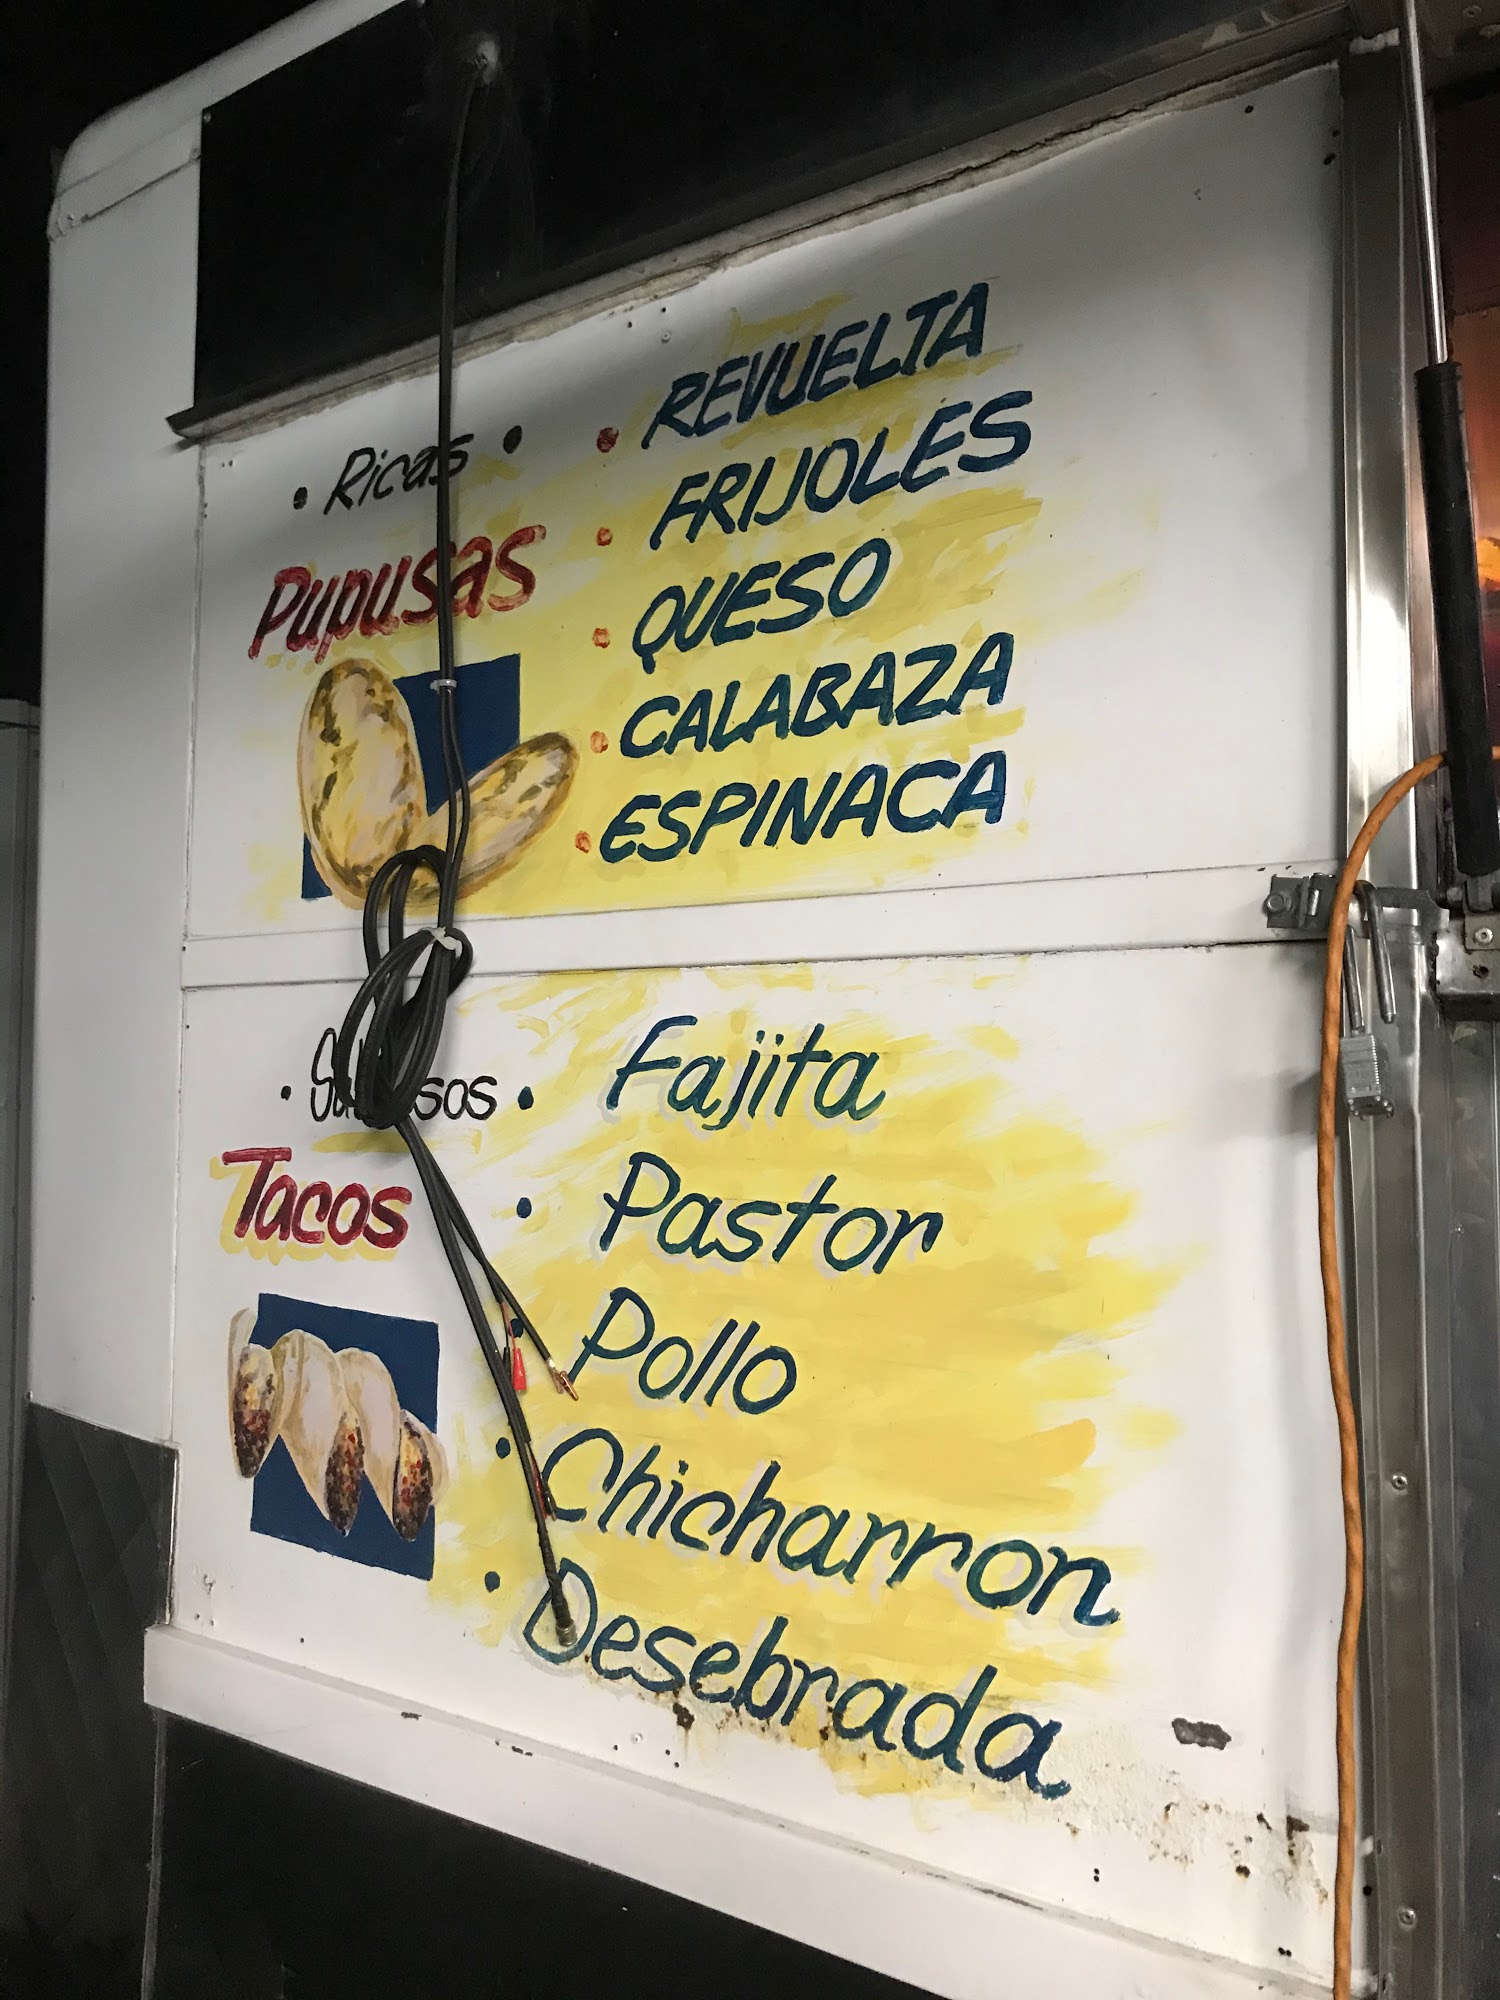 • Ricas •
Pupusas
• REVUELTA
• FRIJOLES
• QUESO
• CALABAZA
• ESPINACA
Tacos
• Fajita
• Pastor
• Pollo
• Chicharron
• Desebrada